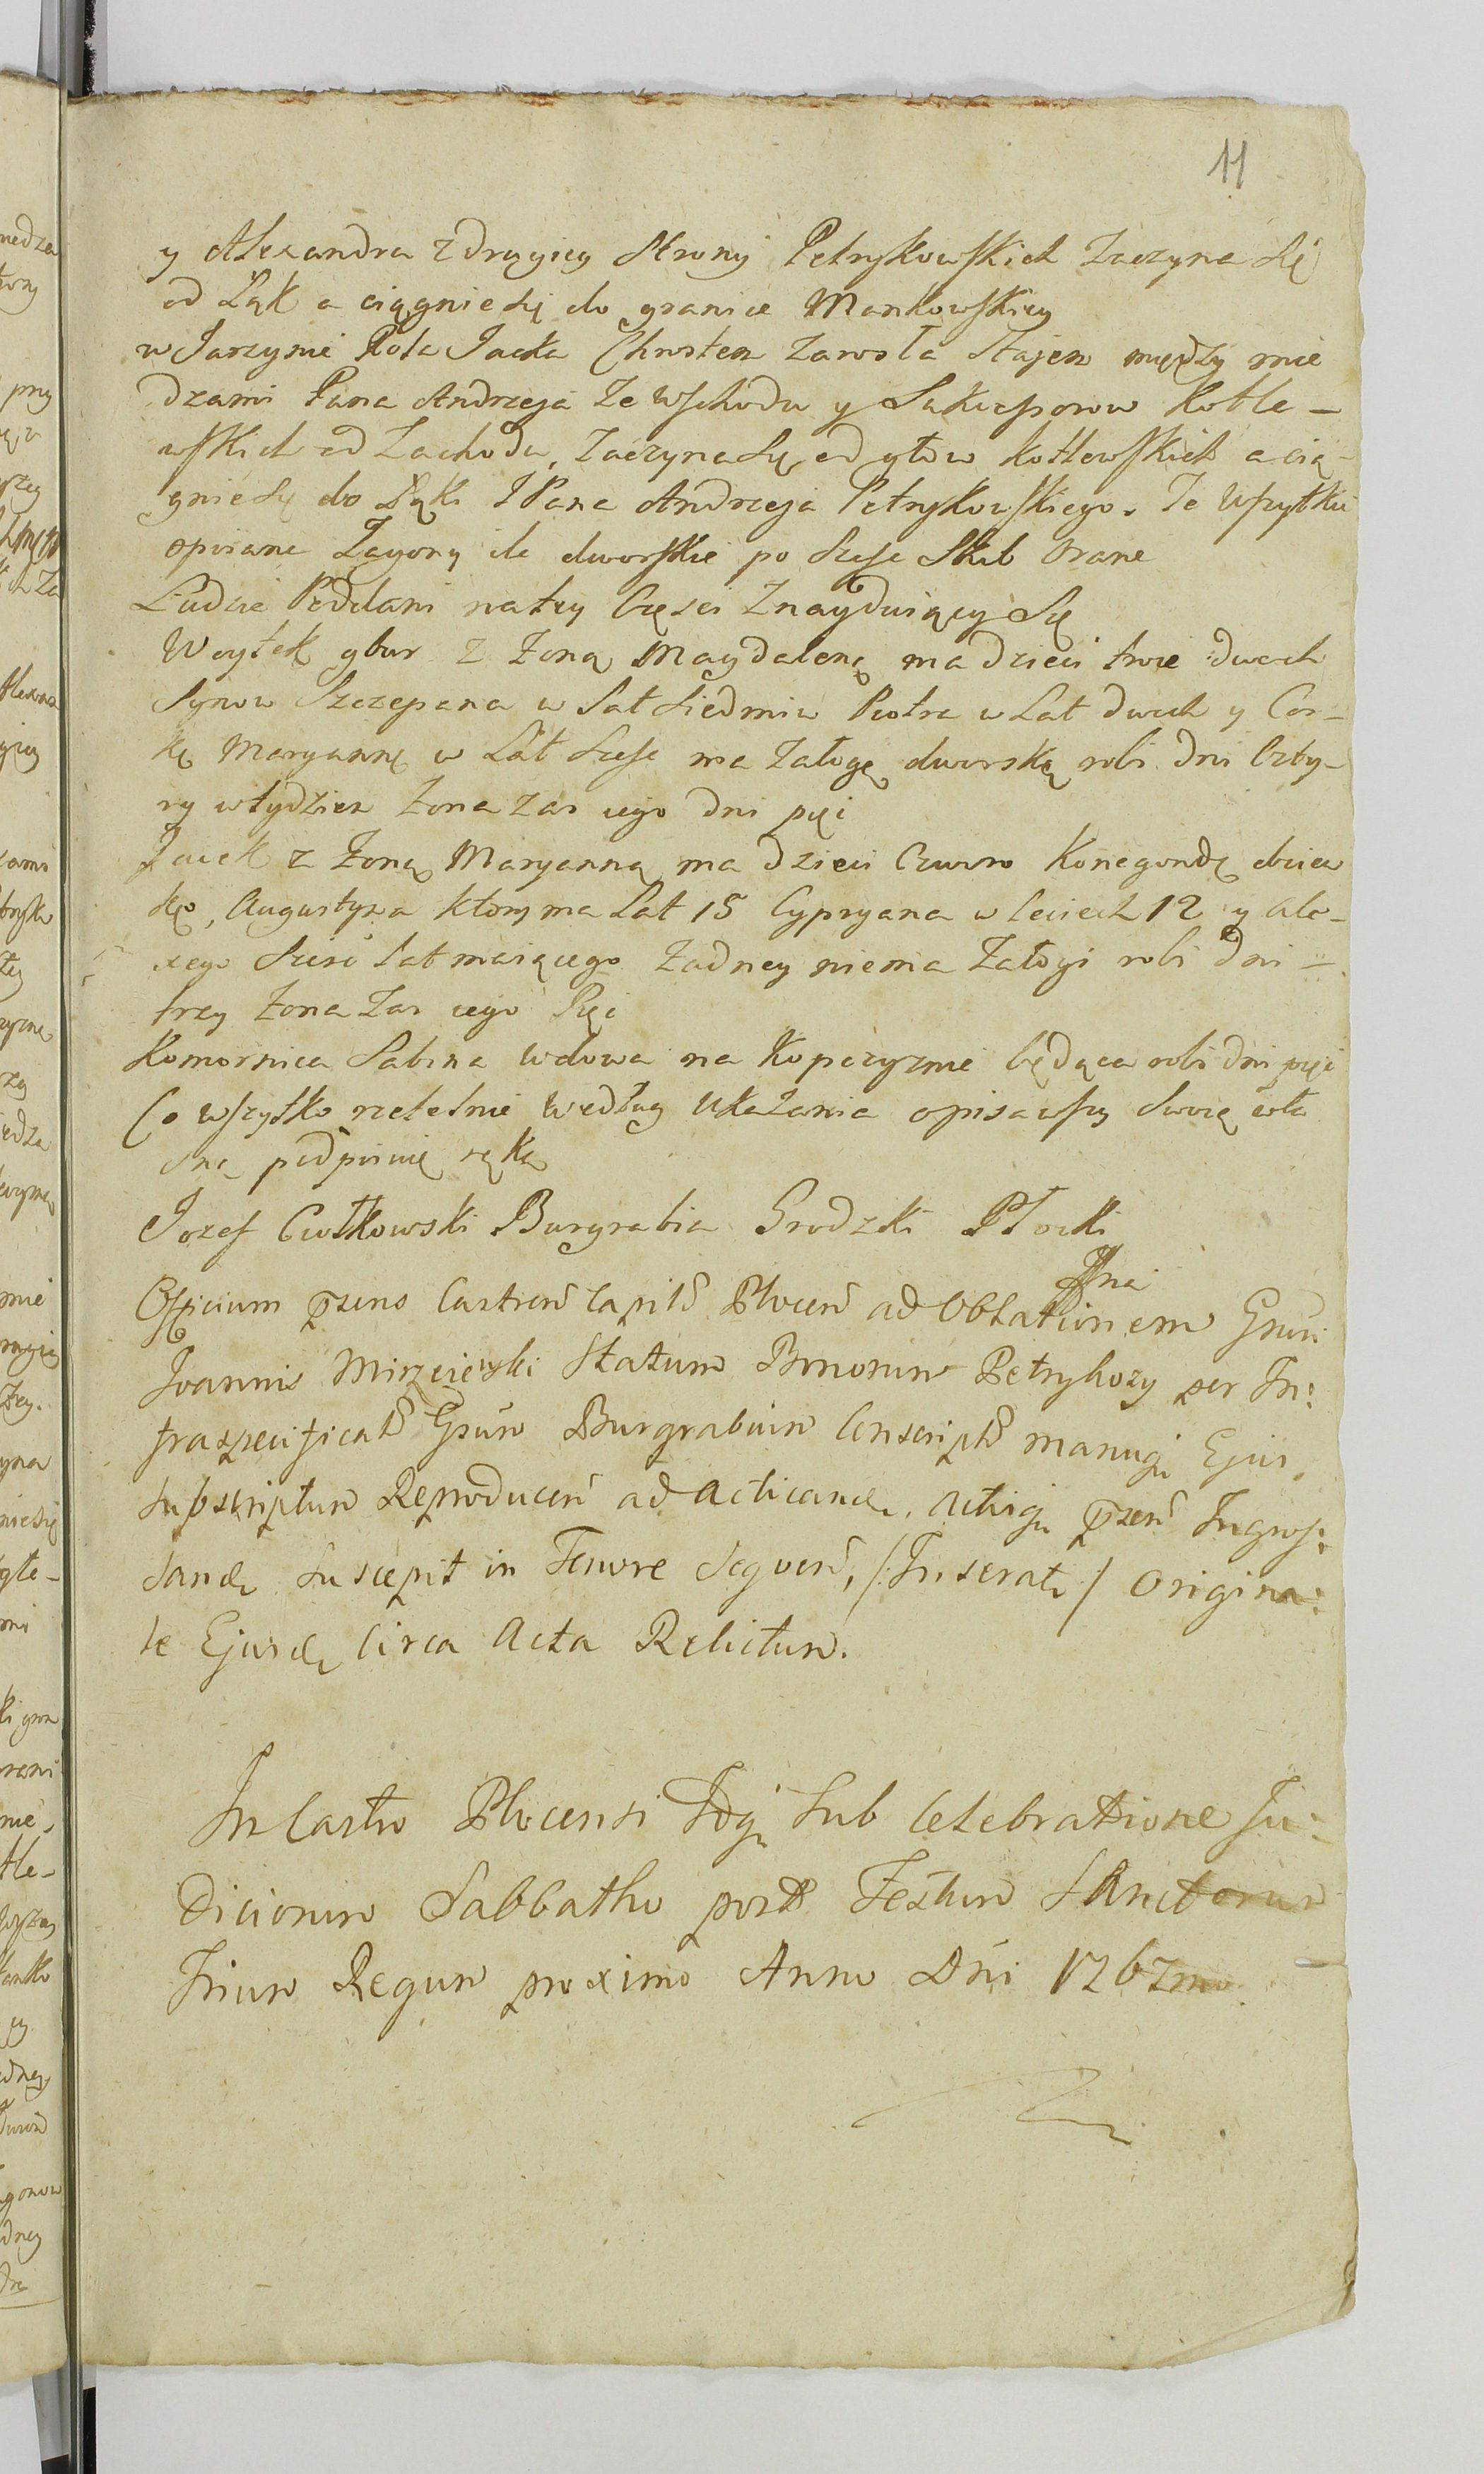 11
y Alexandra z drugiey strony Petrykowskich Zaczyna się
od Łąk a ciągnie się do granice Mankowskiey
w Jarzynie Rola Jacka Chrosten zarosła Stajen między mie
dzami Pana Andrzeja ze Wschodu y Sukcessorow Kotle-
wskich od Zachodu, Zaczyna się od głów kotlewskich a cią-
gnie się do Łąki JPana Andrzeja Petrykowskiego. Te wszytkie
opisane Zagony ile dworskie po sześć Skib Orane
Ludzie Poddani na tey Części Znayduiący się
Woytek gbur z Żoną Magdaleną ma dzieci troie dwoch
Synow Szczepana w Lat siedmiu Piotra w Lat dwuch y Cor-
kę Maryannę w Lat sześć ma Załogę dworską robi dni Czty-
ry w tydzien żona zas iego dni pięć
Jacek z Żoną Maryanną ma dzieci Czworo Konegondę dziew
kę, Augustyna ktory ma Lat 15 Cypryana w leciech 12 y Ale-
xego sześć lat maiącego Żadney niema Załogi robi dni -
trzy żona zas iego Pięć
Komornica Sabina wdowa na Kopczyznie będąca robi dni pięć
Co wszytko rzetelnie według Ukazania opisawszy swoią wła
sną podpisuię ręką
Jozef Ciołkowski Burgrabia Grodzki Płocki
Officium pnzens Castren Capitl Plocen ad Oblationem Gnrsi
Dni
Joannis Mirzeiewski Statum Bonorum Petrykozy per In:
fraspecificatl Gsum Burgrabium Conscriptl manuq Ejus
subscriptum Reproducen ad acticand. Actisq pnzen Ingros:
sand suscepit in Tenore sequen, /:Inserat:/ Origina:
le Ejusd circa Acta Relictum.
In Castro Plocensi Fdq Sub Celebratione Ju:
diciorum Sabbatho post Festum Sanctorum
Trium Regum proximo Anno Dni 1767mo.